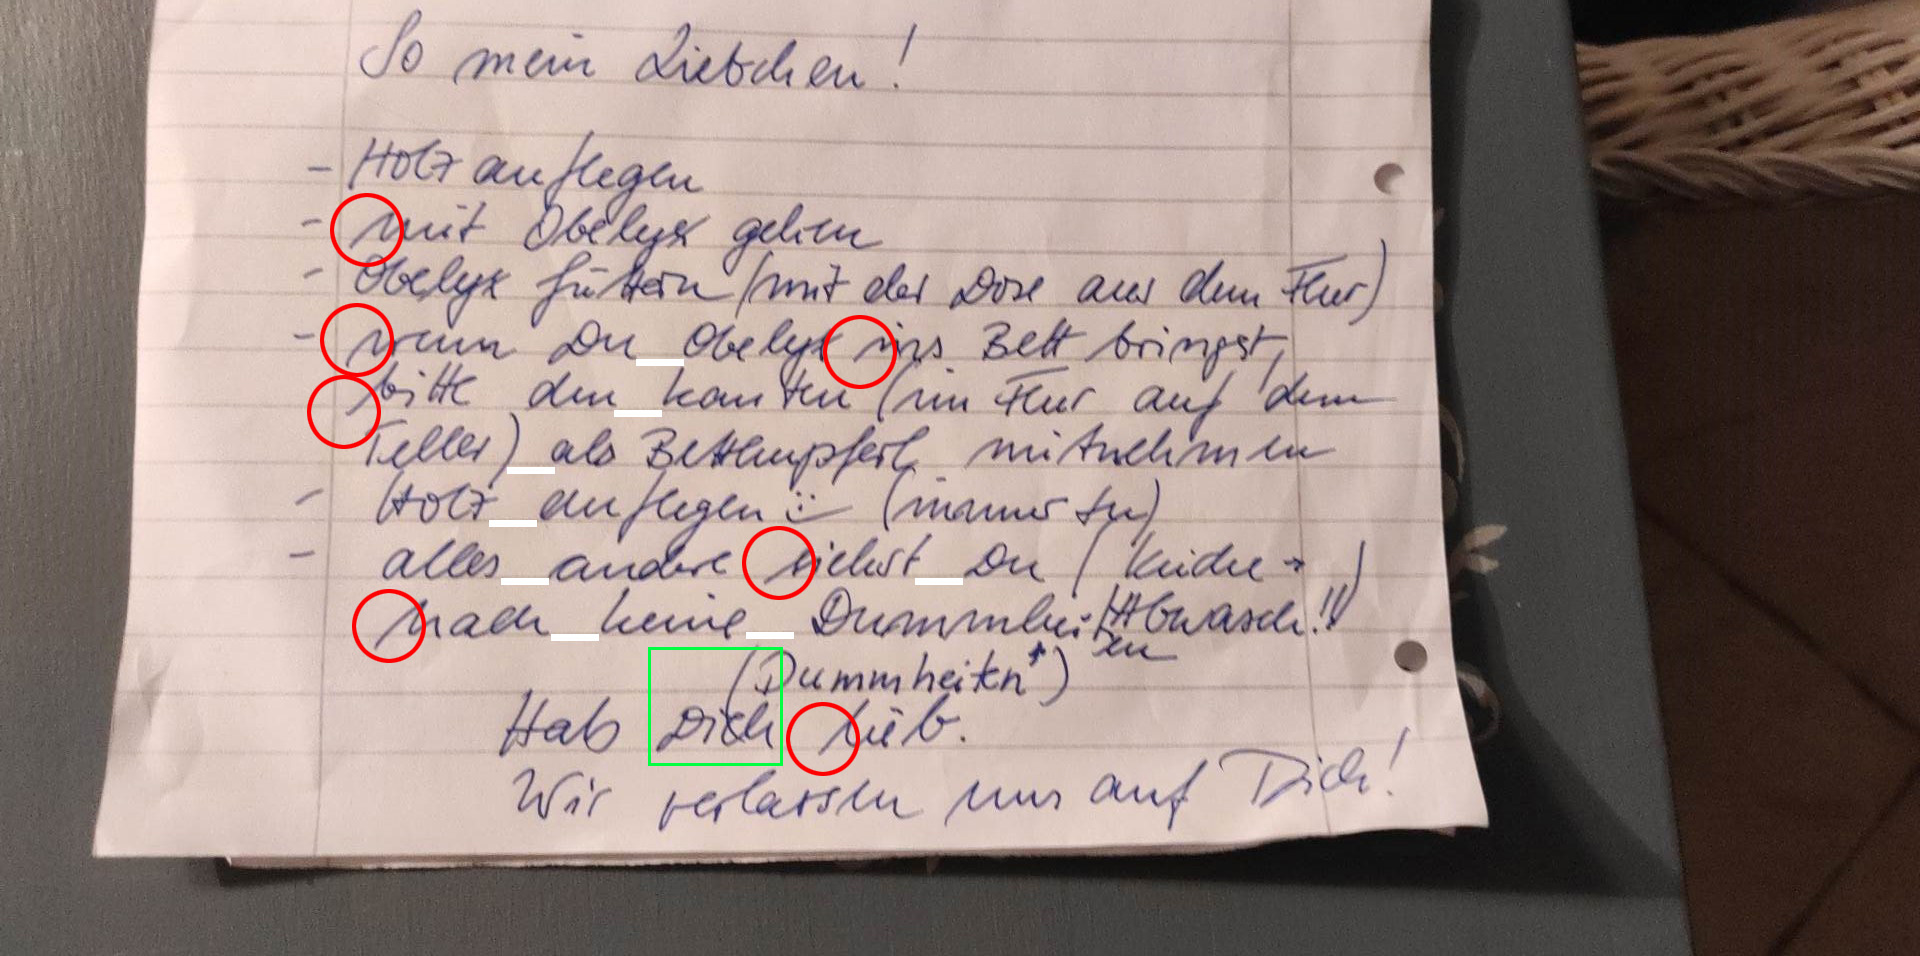 So mein Liebchen!
- Holz auflegen
- mit Obelyx gehen
- Obelyx füttern (mit der Dose aus dem Flur)
- wenn Du Obelyx ins Bett bringst,
bitte den Kanten (im Flur auf dem
Teller) als Betthupferl mitnehmen
- Holz auflegen :) (immer tun)
- alles andere siehst Du (Küche →
Abwasch!!)
mach keine Dummheiten
(Dummheitn*)
Hab Dich lieb.
Wir verlassen uns auf Dich!